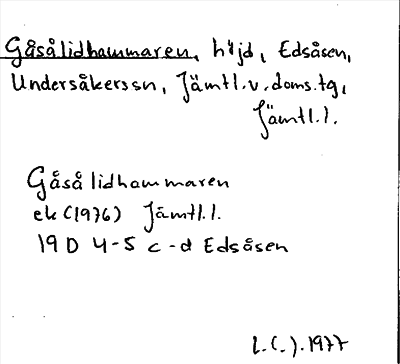 Gåsålidhammaren, höjd, Edsåsen,
Undersåkerssn, Jämtl.v.doms.tg,
Jämtl.l.
Gåsålidhammaren
ek (1976) Jämtl.l.
19D 4-5 c-d Edsåsen
L.C.J.1977